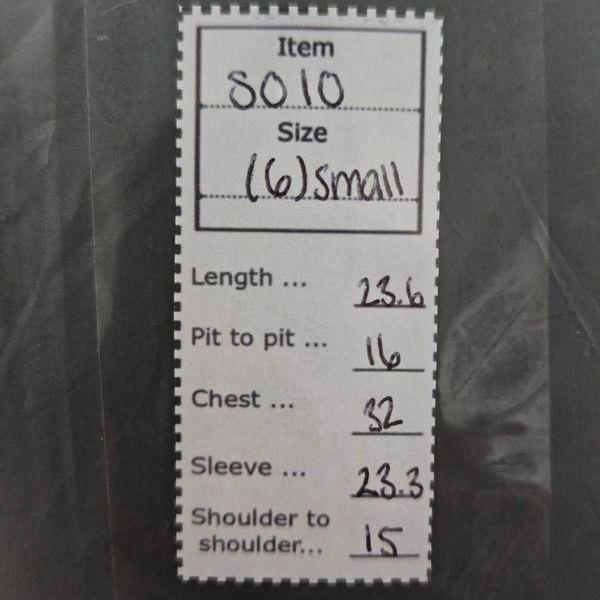 Item
SO10
Size
(6) small
Length ... 23.6
Pit to pit ... 16
Chest ... 32
Sleeve ... 23.3
Shoulder to
shoulder... 15